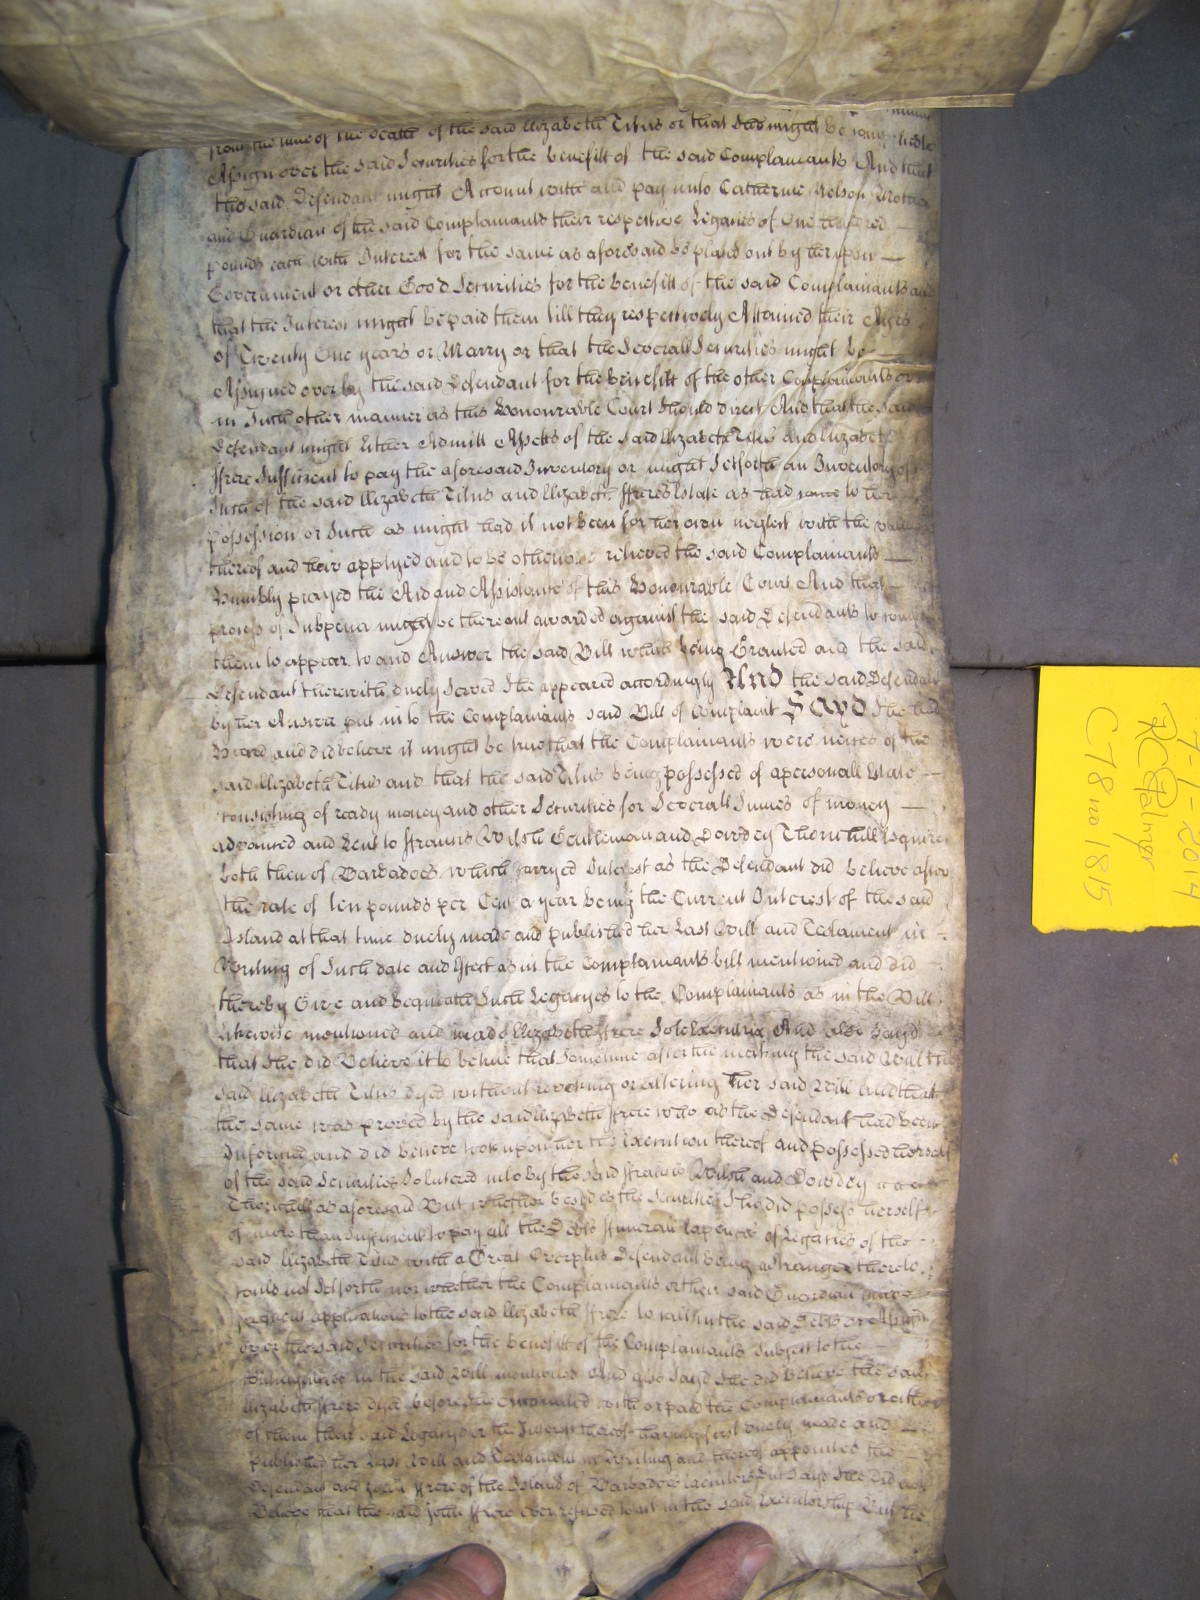 from the time of the death of the said Elizabeth Titus or that She might be
Assign over the said Securities for the benefitt of the said Complainants And that
the said Defendant might Account with and pay unto Catherine Nelson Mother
and Guardian of the said Complainants their respective Legacies of One hundred
pounds each with Interest for the same as aforesaid to be placed out by her upon
Government or other Good Securities for the benefitt of the said Complainants and
that the Interest might be paid them till they respectively Attained their Ages
of Twenty One years or Marry or that the Severall Securities might be
Assigned over by the said Defendant for the benefitt of the other Complainants or
in Such other manner as this Honourable Court Should direct And that the said
Defendant might Either Admitt Assetts of the said Elizabeth Titus and Elizabeth
ffrere Sufficient to pay the aforesaid Inventory or might Setforth an Inventory of
Such of the said Elizabeth Titus and Elizabeth ffreres Estate as had come to her
possession or Such as might had it not been for her own neglect with the
thereof and how applyed and to be otherwise releived the said Complainants
Humbly prayed the Aid and Assistance of this Honourable Court And that
process of Subpena might be thereout awarded against the said Defendants to
them to appear to and Answer the said Bill which being Granted and the said
Defendant therewith duely Served She appeared accordingly And the said Defendant
by her Answer put in to the Complainants said Bill of Complaint Sayd She had
Heard and did believe it might be true that the Complainants were neices of the
said Elizabeth Titus and that the said Titus being possessed of a personall Estate
consisting of ready money and other Securities for Severall Summes of money
advanced and Lent to ffrancis Wilsh Gentleman and Dowdey Thornhill Esquire
both then of Barbadoes which carryed Interest as the Defendant did believe after
the rate of Ten pounds per Cent a year being the Current Interest of the said
Island at that time duely made and published her Last Will and Testament in
Writing of Such date and effect as in the Complainants bill mentioned and did
thereby Give and bequeath Such Legacyes to the Complainants as in the Bill
likewise mentioned and made Elizabeth ffrere Sole Executrix And also Sayd
that She did Believe it to be true that Sometime after the making the said Will the
said Elizabeth Titus dyed without revoking or altering her said Will and that
the same was proved by the said Elizabeth ffrere who as the Defendant had been
Informed and did believe took upon her the Execution thereof and possessed herself
of the said Securities So Entered into by the said ffrancis Wilsh and Dowdey
Thornhill as aforesaid But whether besides the Securities She did possess herself
of more than Sufficient to pay all the Debts ffuneral Expences of Legacies of the
said Elizabeth Titus with a Great Overplus Defendant being a Stranger thereto
could not Setforth nor whether the Complainants or their said Guardian made
frequent applications to the said Elizabeth ffrere to call in the said Debts or Assign
over the said Securities for the benefitt of the Complainants Subject to the
Contingencies in the said Will mentioned And also Sayd She did Believe the said
Elizabeth ffrere dyed before She Accounted with or paid the Complainants or either
of them their said Legacys or the Interest thereof having first duely made and
published her Last Will and Testament in Writing and thereof appointed the
Defendant and John ffrere of the Island of Barbadoes Executors But Sayd She Did not
Believe that the said John ffrere ever refused to act in the said Executorship But the
7-1-2014
RC Palmer
C78 no 1815